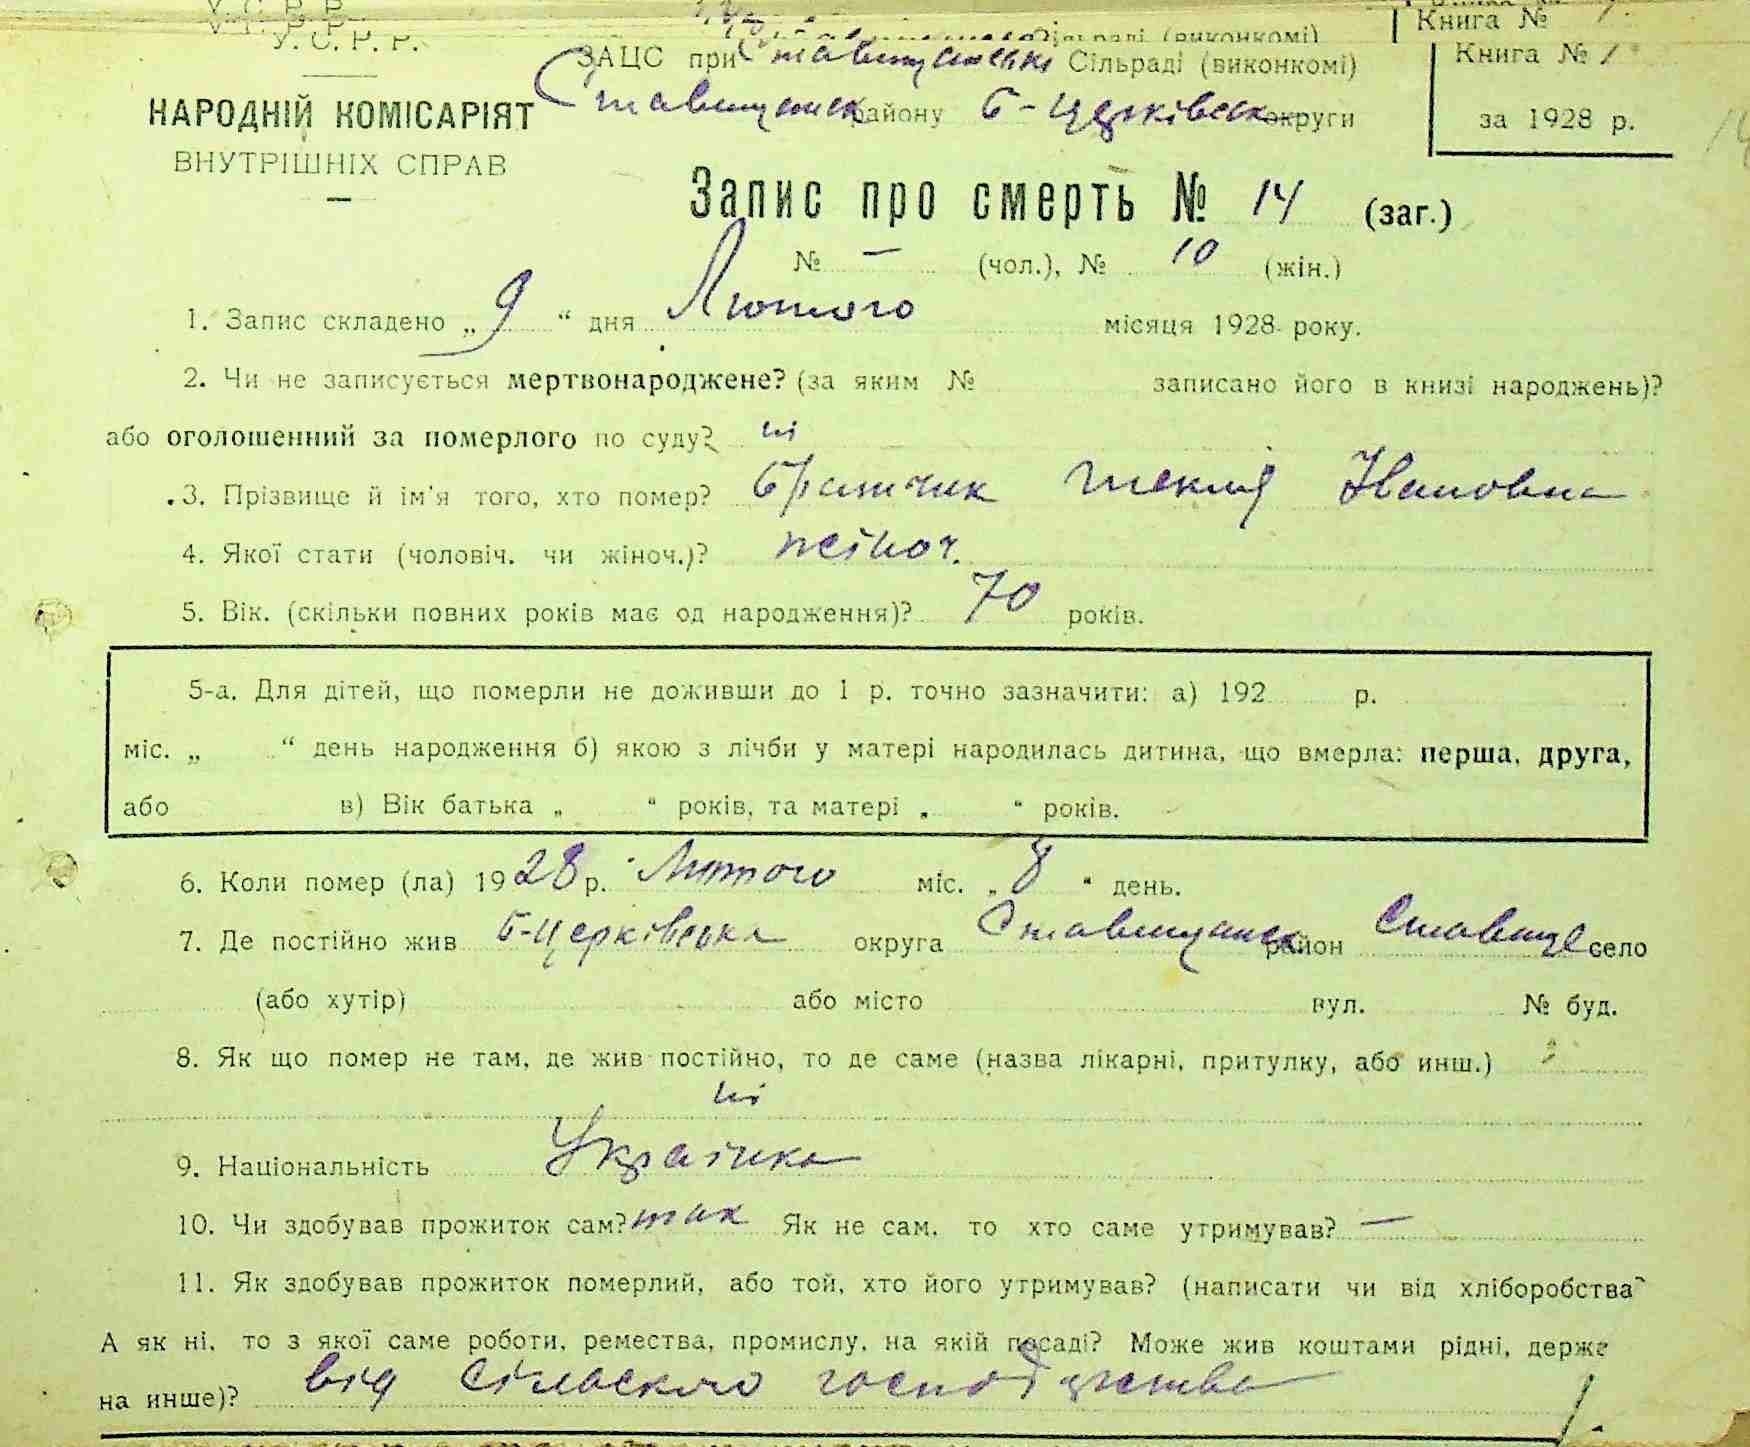 У. С. Р. Р.
Книга №
У. С. Р. Р.
ЗАЦС при Ставищанські Сільраді (виконкомі)
Книга № 1
НАРОДНІЙ КОМІСАРІЯТ
Ставищанськ району Б-Церківськ округи
за 1928 р.
ВНУТРІШНІХ СПРАВ
Запис про смерть № 14 (заг.)
№ — (чол.), № 10 (жін.)
1. Запис складено „ 9 “ дня Лютого місяця 1928 року.
2. Чи не записується мертвонароджене? (за яким № записано його в книзі народжень)?
або оголошенний за померлого по суду? ні
3. Прізвище й ім'я того, хто помер? Братчик Текля Івановна
4. Якої стати (чоловіч. чи жіноч.)? жіноч.
5. Вік. (скільки повних років має од народження)? 70 років.
5-а. Для дітей, що померли не доживши до 1 р. точно зазначити: а) 192 р.
міс. „ “ день народження б) якою з лічби у матері народилась дитина, що вмерла: перша, друга,
або в) Вік батька „ “ років, та матері „ “ років.
6. Коли помер (ла) 1928 р. Лютого міс. „ 8 “ день.
7. Де постійно жив Б-Церківська округа Ставищанськ район Ставище село
(або хутір) або місто вул. № буд.
8. Як що помер не там, де жив постійно, то де саме (назва лікарні, притулку, або инш.)
ні
9. Національність Українка
10. Чи здобував прожиток сам? так Як не сам, то хто саме утримував? —
11. Як здобував прожиток померлий, або той, хто його утримував? (написати чи від хліборобства?
А як ні, то з якої саме роботи, ремества, промислу, на якій посаді? Може жив коштами рідні, держ
на инше)? від сільського господарства